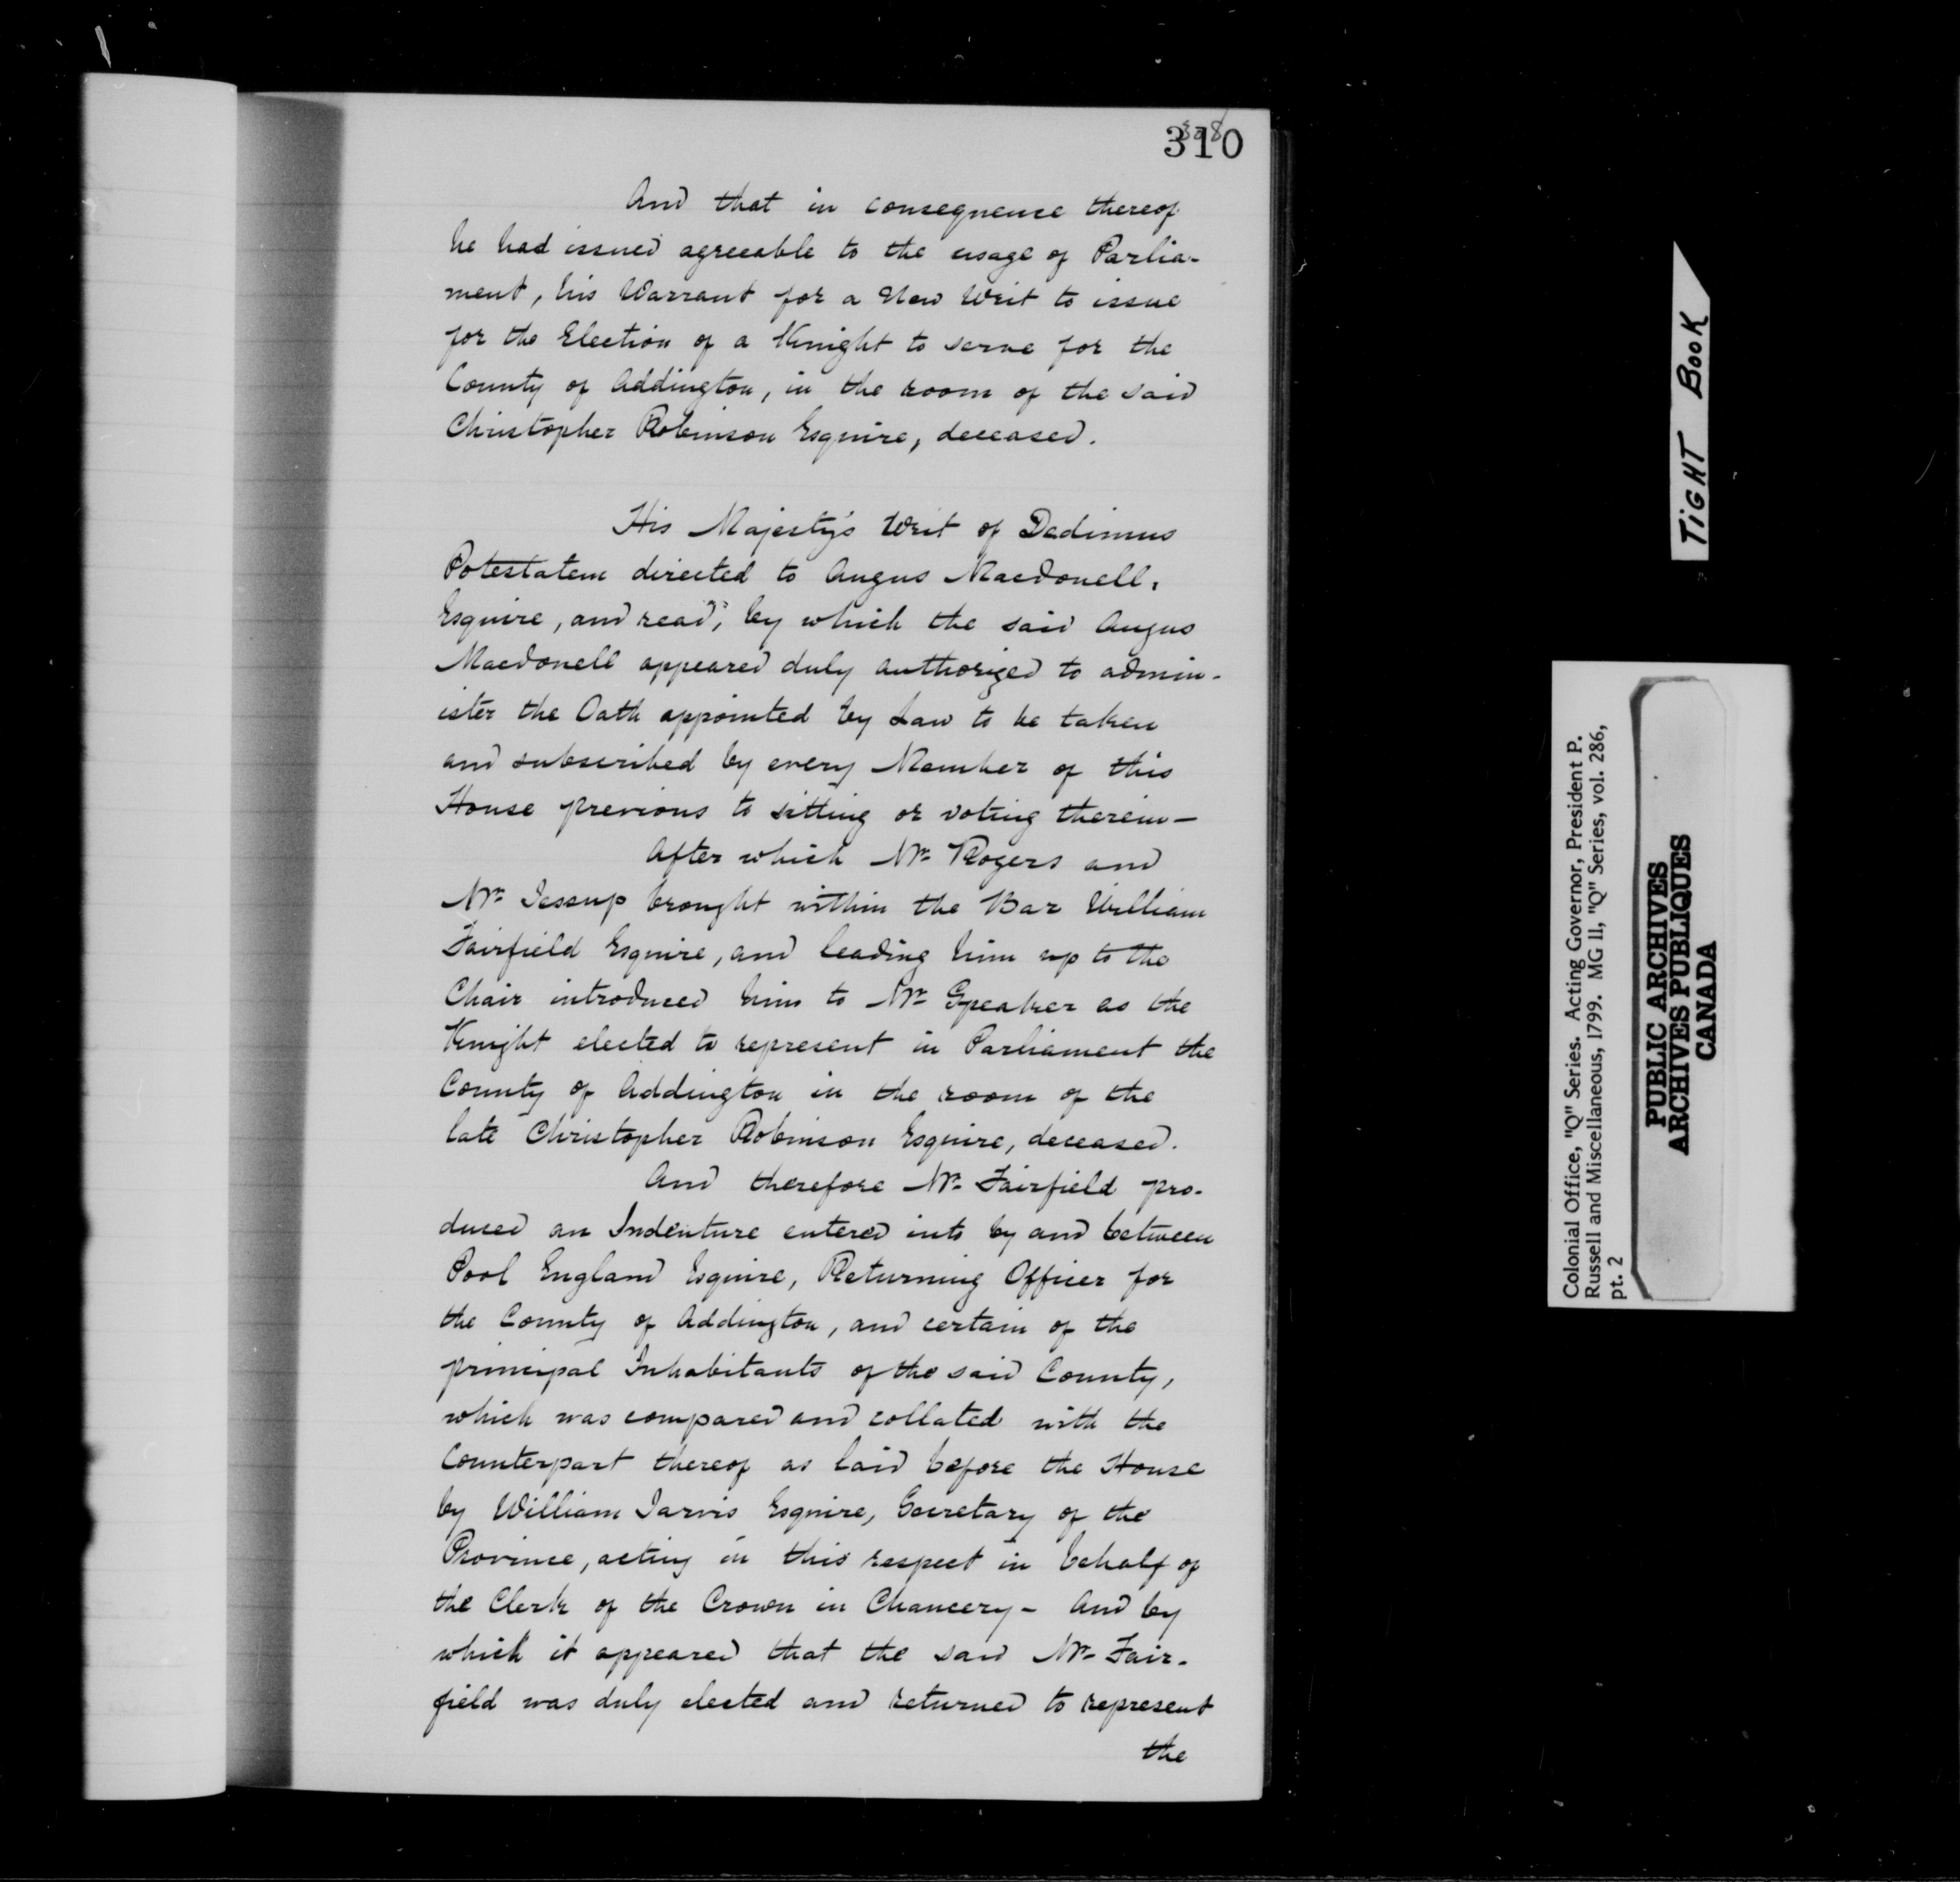 308
310
And that in consequence thereof
he had issued agreeable to the usage of Parlia-
ment, his Warrant for a New Writ to issue
for the Election of a Knight to serve for the
County of Addington, in the room of the said
Christopher Robinson Esquire, deceased.
His Majesty's Writ of Dedimus
Potestatem directed to Angus Macdonell,
Esquire, and read, by which the said Angus
Macdonell appeared duly authorized to admin-
ister the Oath appointed by Law to be taken
and subscribed by every Member of this
House previous to sitting or voting therein—
After which Mr. Rogers and
Mr. Jessup brought within the Bar William
Fairfield Esquire, and leading him up to the
Chair introduced him to Mr. Speaker as the
Knight elected to represent in Parliament the
County of Addington in the room of the
late Christopher Robinson Esquire, deceased.
And therefore Mr. Fairfield pro-
duced an Indenture entered into by and between
Pool England Esquire, Returning Officer for
the County of Addington, and certain of the
principal Inhabitants of the said County,
which was compared and collated with the
Counterpart thereof as laid before the House
by William Jarvis Esquire, Secretary of the
Province, acting in this respect in behalf of
the Clerk of the Crown in Chancery- And by
which it appeared that the said Mr. Fair-
field was duly elected and returned to represent
the
TIGHT BOOK
Colonial Office, "Q" Series. Acting Governor, President P.
Russell and Miscellaneous, 1799. MG 11, "Q" Series, vol. 286,
pt. 2
PUBLIC ARCHIVES
ARCHIVES PUBLIQUES
CANADA